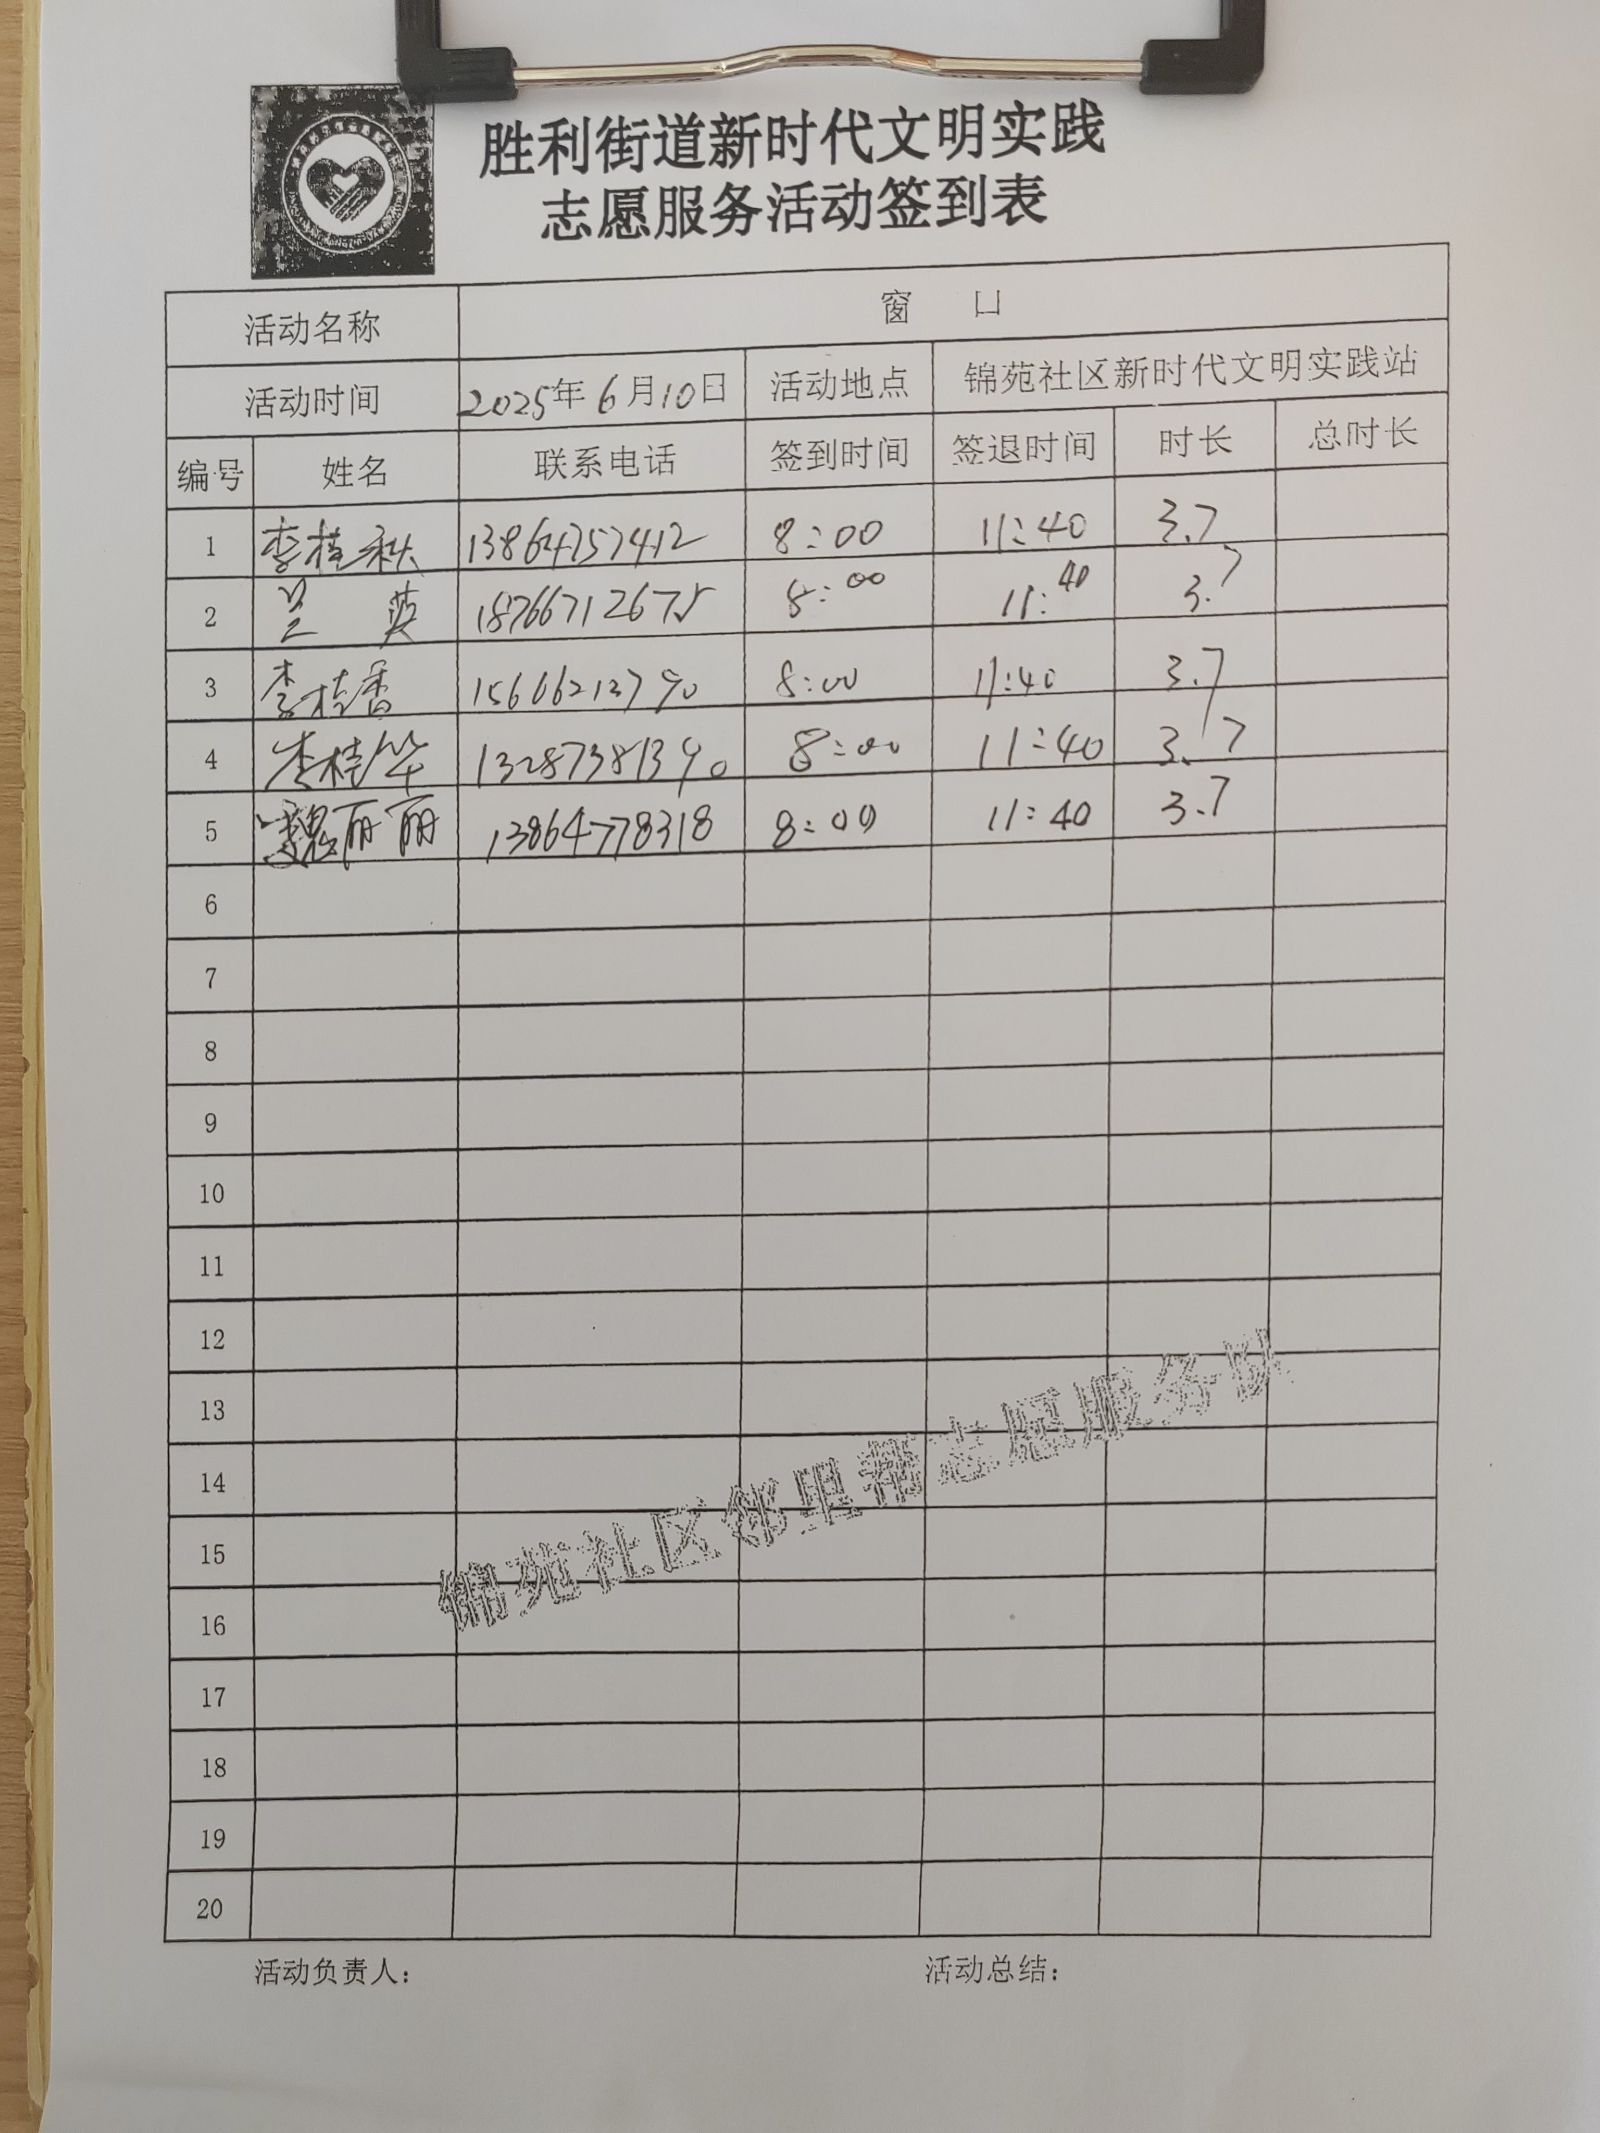 胜利街道新时代文明实践
志愿服务活动签到表
活动名称 窗 口
活动时间 2025年6月10日 活动地点 锦苑社区新时代文明实践站
编号 姓名 联系电话 签到时间 签退时间 时长 总时长
1 李桂秋 13864757412 8:00 11:40 3.7
2 兰英 18766712675 8:00 11:40 3.7
3 李桂香 15606213790 8:00 11:40 3.7
4 李桂华 13287381390 8:00 11:40 3.7
5 魏丽丽 13864778318 8:00 11:40 3.7
6
7
8
9
10
11
12
13
14
15
16
17
18
19
20
锦苑社区邻里帮志愿服务队
活动负责人： 活动总结：